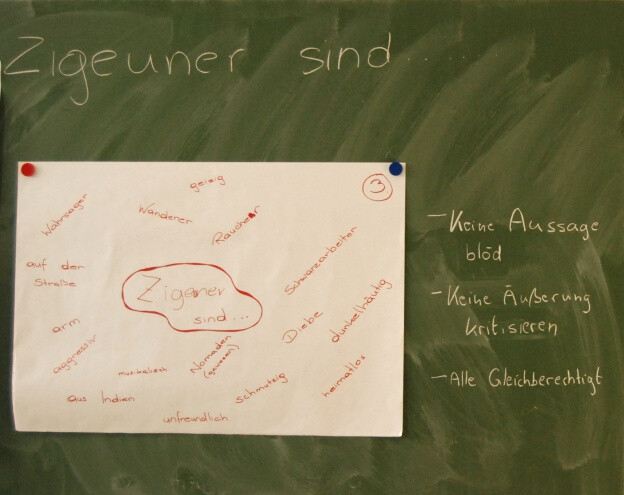 Zigeuner sind......
3
geizig
Wahrsager
Wanderer
Raucher
auf der
Straße
Schwarzarbeiter
Zigeuner
sind...
dunkelhäutig
Diebe
arm
aggressiv
musikalisch
Nomaden
(gewesen)
schmutzig
heimatlos
aus Indien
unfreundlich
- Keine Aussage
blöd
- Keine Äußerung
kritisieren
- Alle Gleichberechtigt